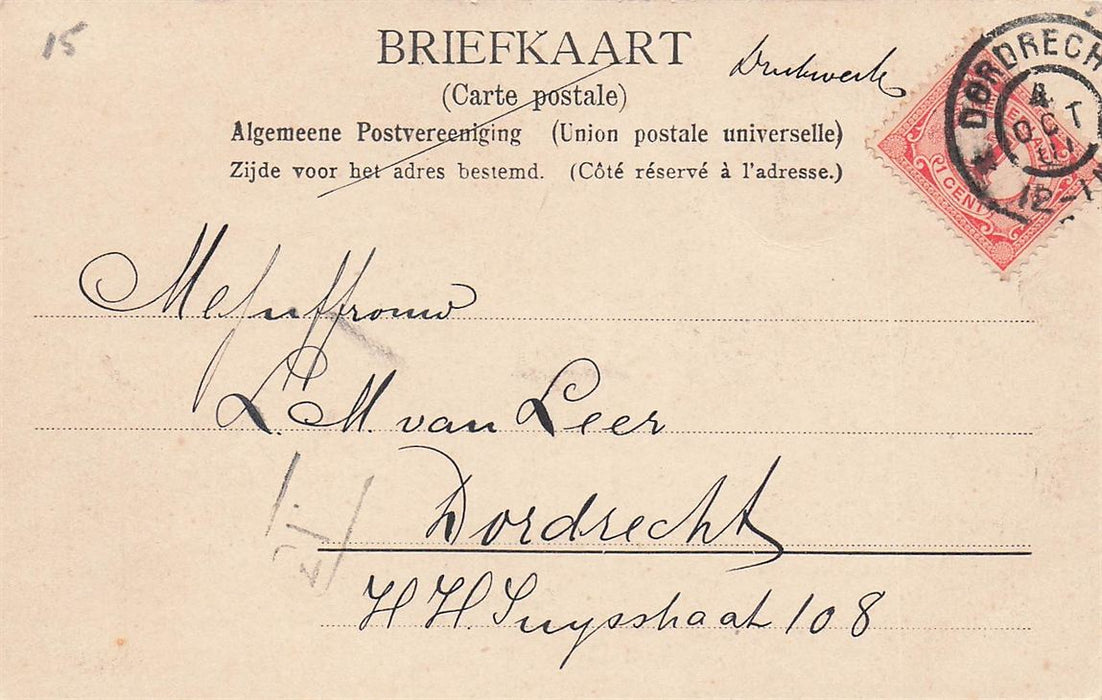 15
BRIEFKAART
Drukwerk
(Carte postale)
Algemeene Postvereeniging (Union postale universelle)
Zijde voor het adres bestemd. (Côté réservé à l'adresse.)
DORDRECH
4
OCT
12-1N
1 CENT
Mejuffrouw
L. M. van Leer
Dordrecht
H H. Suysstraat 108